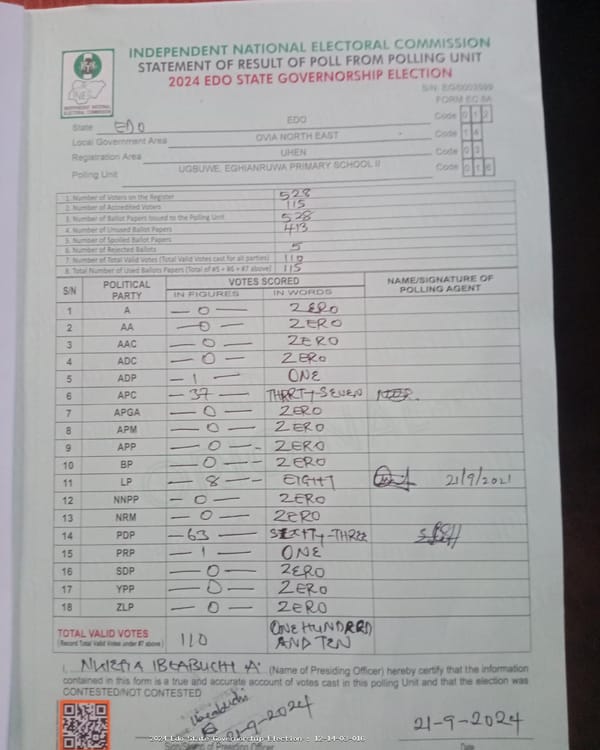 INDEPENDENT NATIONAL ELECTORAL COMMISSION
STATEMENT OF RESULT OF POLL FROM POLLING UNIT
2024 EDO STATE GOVERNORSHIP ELECTION
FORM EC 8A
State EDO EDO Code 0 1 2
Local Government Area OVIA NORTH EAST Code 1 4
Registration Area UHEN Code 0 3
Polling Unit UGBUWE, EGHIANRUWA PRIMARY SCHOOL II Code 0 1 6
1. Number of Voters on the Register 528
2. Number of Accredited Voters 115
3. Number of Ballot Papers Issued to the Polling Unit 528
4. Number of Unused Ballot Papers 413
5. Number of Spoiled Ballot Papers
6. Number of Rejected Ballots 5
7. Number of Total Valid Votes (Total Valid Votes cast for all parties) 110
8. Total Number of Used Ballots Papers (Total of #5 + #6 + #7 above) 115
S/N POLITICAL PARTY VOTES SCORED NAME/SIGNATURE OF POLLING AGENT
IN FIGURES IN WORDS
1 A — 0 — ZERO
2 AA — 0 — ZERO
3 AAC — 0 — ZERO
4 ADC — 0 — ZERO
5 ADP — 1 — ONE
6 APC — 37 — THIRTY-SEVEN
7 APGA — 0 — ZERO
8 APM — 0 — ZERO
9 APP — 0 — ZERO
10 BP — 0 — ZERO
11 LP — 8 — EIGHT 21/9/2021
12 NNPP — 0 — ZERO
13 NRM — 0 — ZERO
14 PDP — 63 — SIXTY-THREE
15 PRP — 1 — ONE
16 SDP — 0 — ZERO
17 YPP — 0 — ZERO
18 ZLP — 0 — ZERO
TOTAL VALID VOTES 110 ONE HUNDRED AND TEN
(Record Total Valid Votes under #7 above)
I, (Name of Presiding Officer) hereby certify that the information
contained in this form is a true and accurate account of votes cast in this polling Unit and that the election was
CONTESTED/NOT CONTESTED
21-9-2024 21-9-2024
2024 Edo State Governorship Election - 12-14-03-016
Date